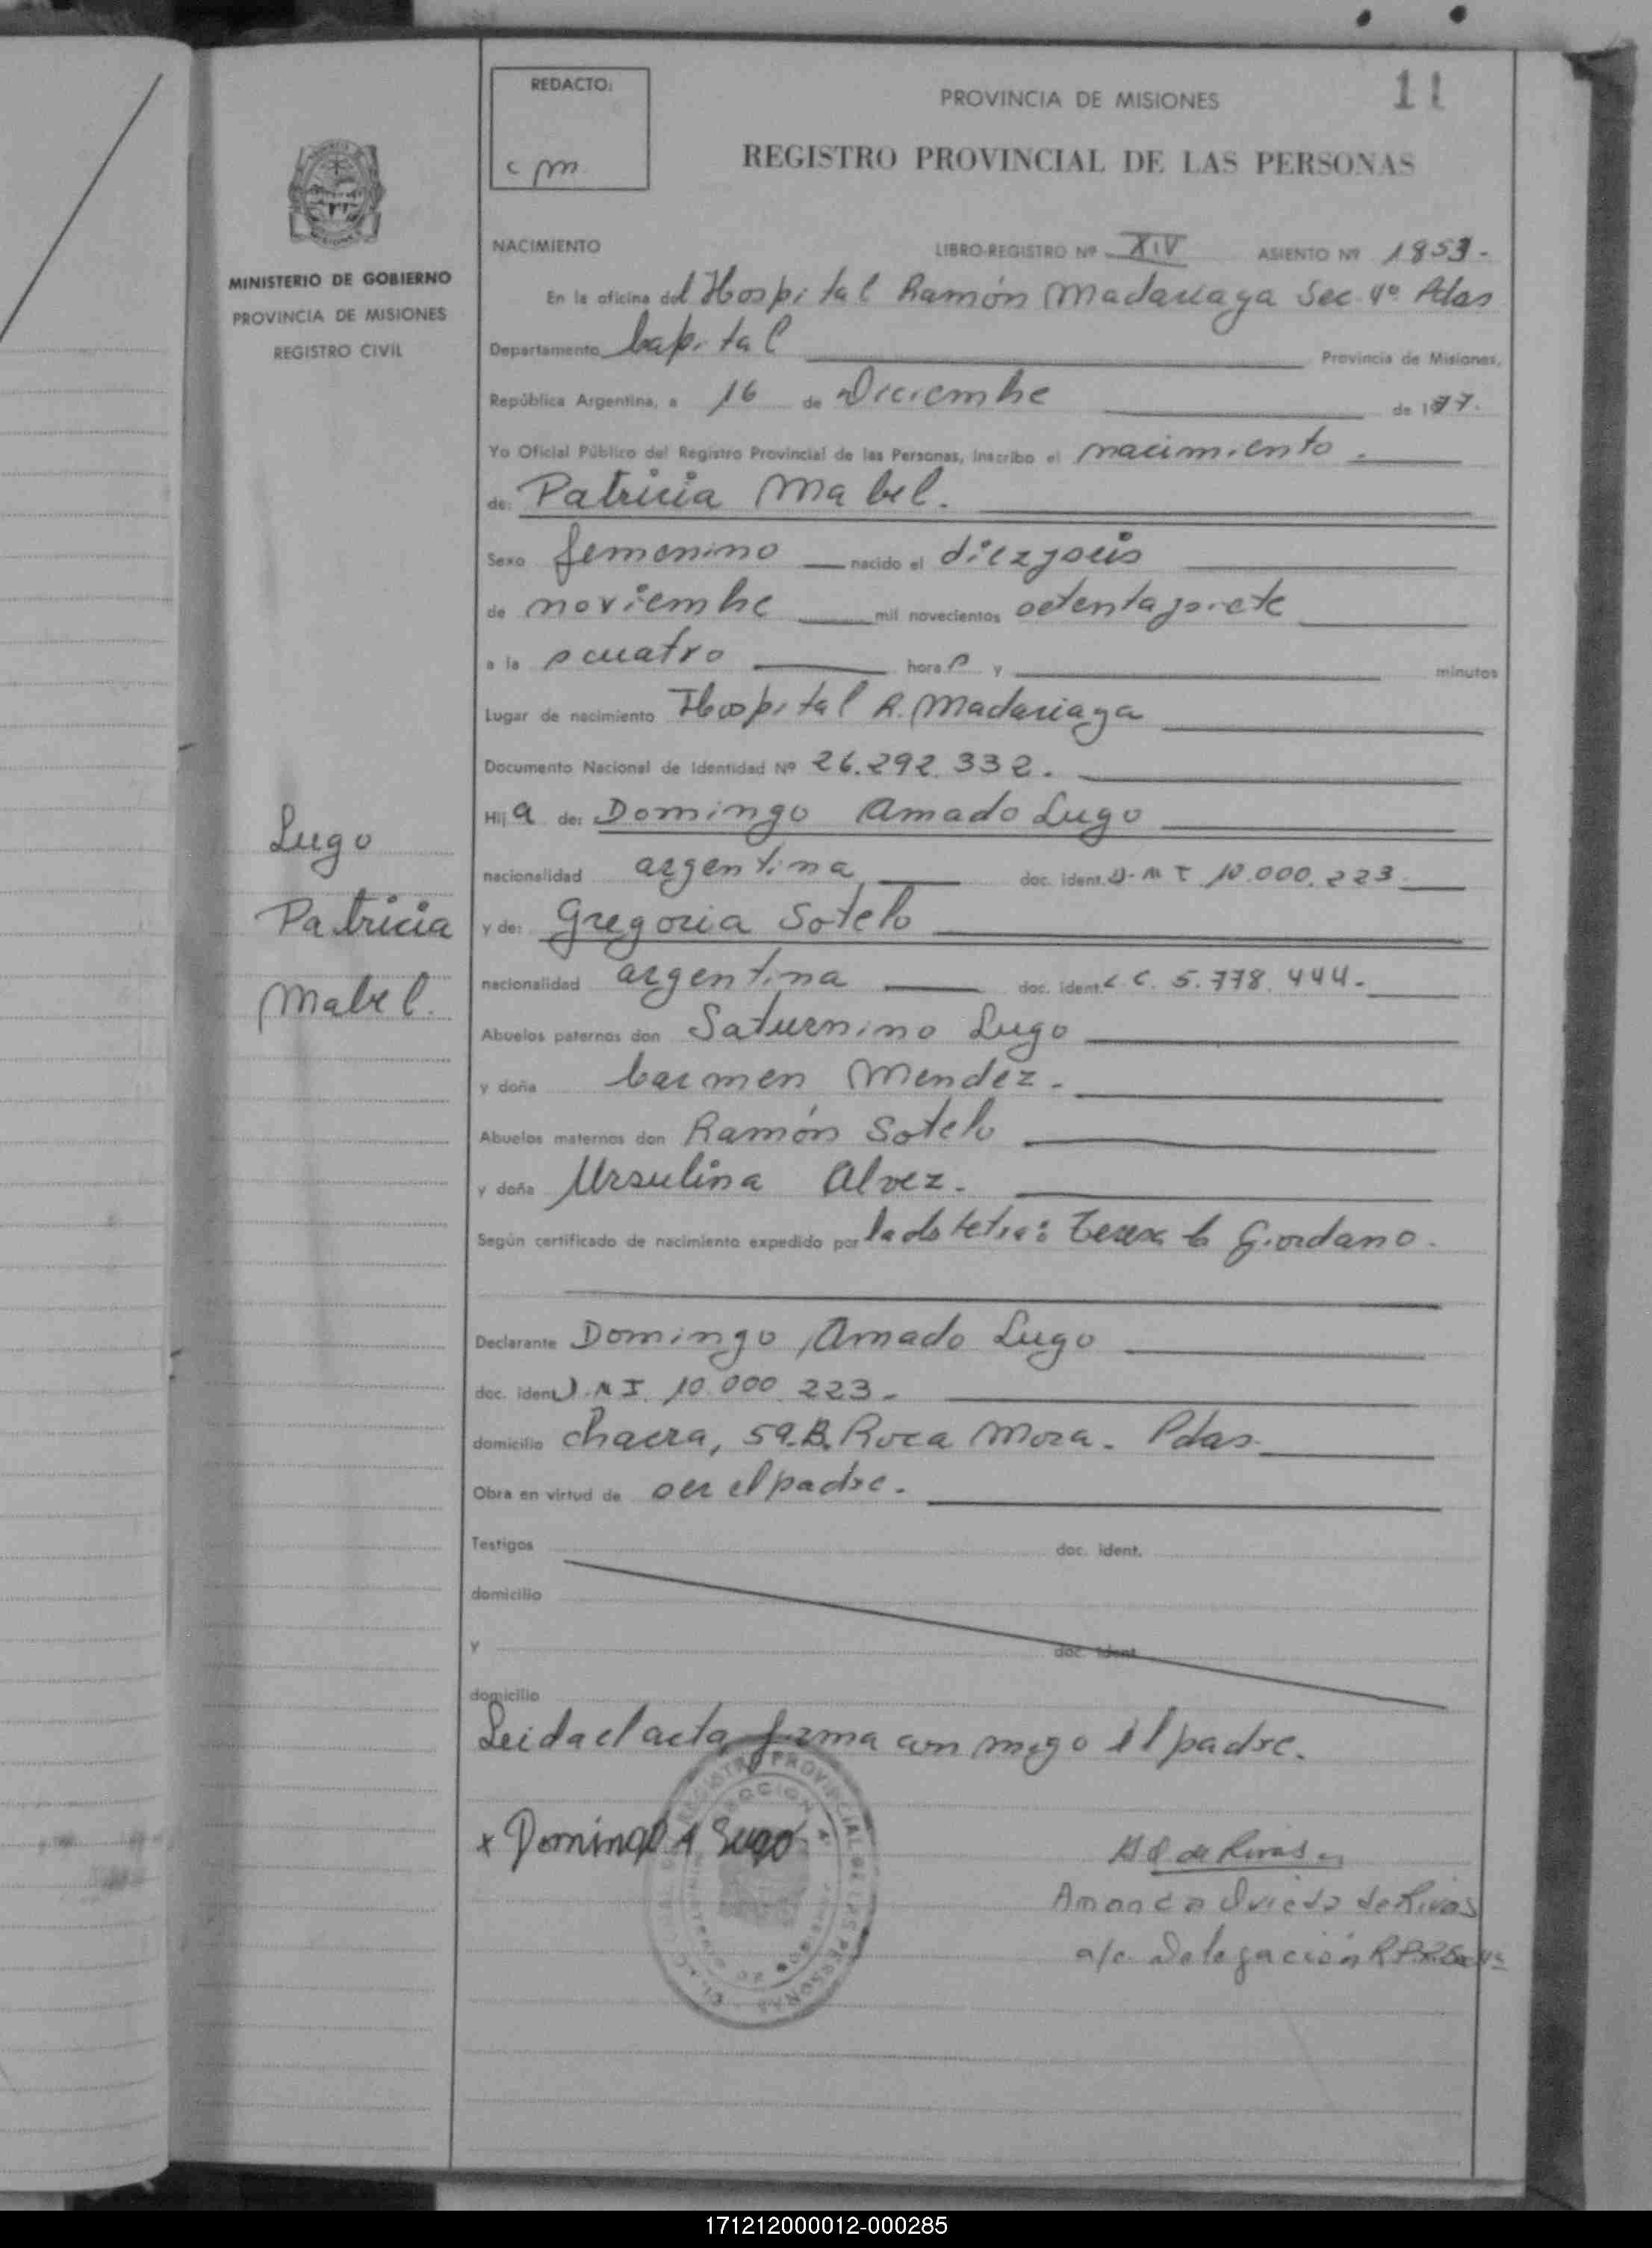 11
REDACTO:
c m
PROVINCIA DE MISIONES
REGISTRO PROVINCIAL DE LAS PERSONAS
MINISTERIO DE GOBIERNO
PROVINCIA DE MISIONES
REGISTRO CIVIL
Lugo
Patricia
Mabel.
NACIMIENTO LIBRO-REGISTRO Nº XIV ASIENTO Nº 1853.-
En la oficina del Hospital Ramón Madariaga Sec. 4º Pdas
Departamento Capital Provincia de Misiones,
República Argentina, a 16 de Diciembre de 1977.
Yo Oficial Público del Registro Provincial de las Personas, inscribo el nacimiento.
de: Patricia Mabel.
Sexo femenino nacido el diezyseis
de noviembre mil novecientos setentaysiete
a la s cuatro hora s y minutos
Lugar de nacimiento Hospital R. Madariaga
Documento Nacional de Identidad Nº 26.292.332.
Hij a de: Domingo Amado Lugo
nacionalidad argentina doc. ident. D.N.I 10.000.223
y de: Gregoria Sotelo
nacionalidad argentina doc. ident. L.C. 5.778.444.-
Abuelos paternos don Saturnino Lugo
y doña Carmen Mendez.
Abuelos maternos don Ramón Sotelo
y doña Ursulina Alvez.
Según certificado de nacimiento expedido por la obstetra: Teresa Giordano.
Declarante Domingo Amado Lugo
doc. ident D.N.I. 10.000.223.
domicilio Chacra, 59.B. Roca Mora. Pdas.
Obra en virtud de ser el padre.
Testigos doc. ident.
domicilio
y doc. ident.
domicilio
Leida el acta, firma con migo el padre.
x Domingo A Lugo
REGISTRO PROVINCIAL DE LAS PERSONAS
A O de Rivas
Amanda Oviedo de Rivas
a/c Delegación
171212000012-000285